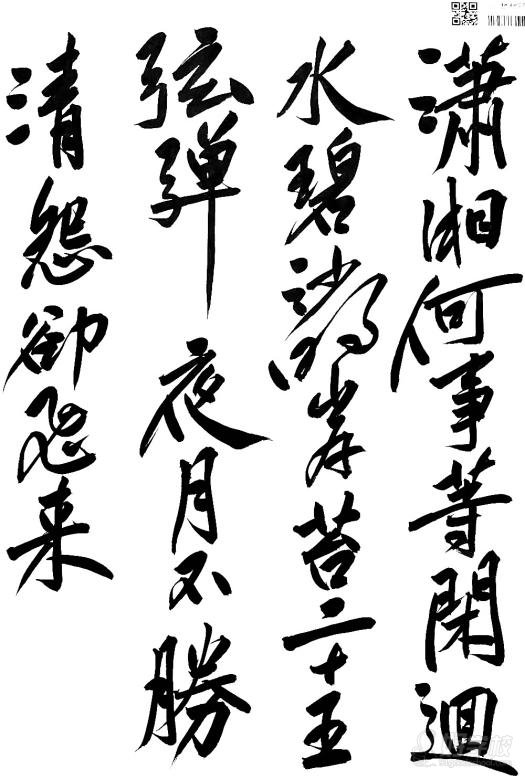 瀟湘何事等閑迴
水碧沙明岸苔二十五
弦弹夜月不勝
清怨卻飛来